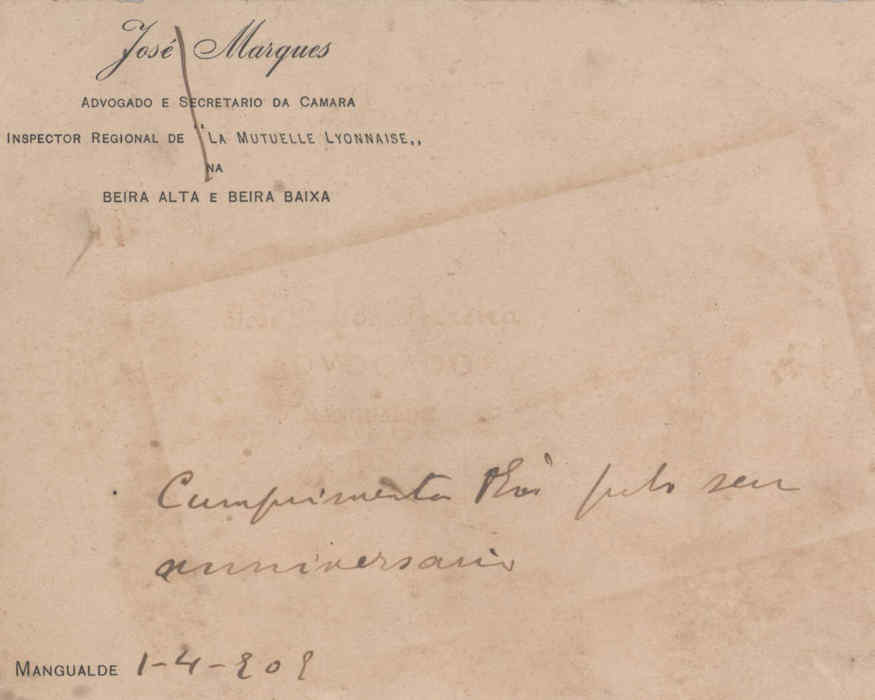 José Marques
ADVOGADO E SECRETARIO DA CAMARA
INSPECTOR REGIONAL DE "LA MUTUELLE LYONNAISE,,
NA
BEIRA ALTA E BEIRA BAIXA
ADVOGADO
Cumprimenta pelo seu
anniversario
MANGUALDE 1-4-909